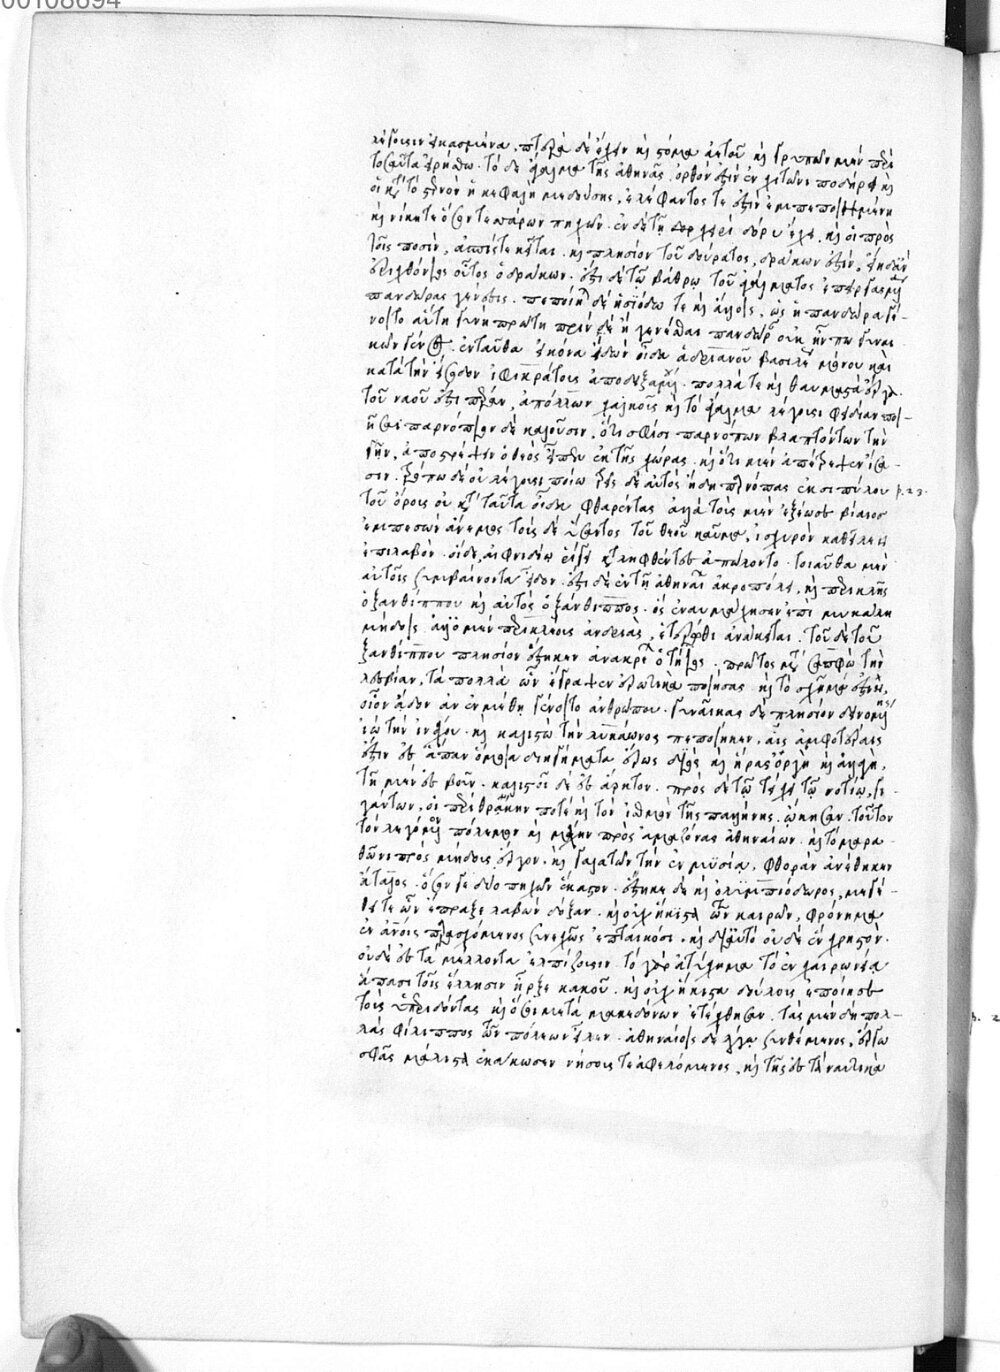 00108694
λέουσιν εἰκασμένα, πτερὰ δὲ ἔχειν καὶ στόμα ἀετοῦ καὶ γρυπῶν μὲν πέρι
τοσαῦτα εἰρήσθω. τὸ δὲ ἄγαλμα τῆς ἀθηνᾶς ὀρθόν ἐστιν ἐν χιτῶνι ποδήρει καὶ
οἱ κατὰ τὸ στέρνον ἡ κεφαλὴ μεδούσης, ἐλέφαντός τε ἐστὶν ἐμπεποιημένη
καὶ νίκη τε ὅσον τεσσάρων πηχῶν. ἐν δὲ τῇ χειρὶ δόρυ ἔχει, καὶ οἱ πρὸς
τοῖς ποσὶν, ἀσπίς τε κεῖται. καὶ πλησίον τοῦ δόρατος, δράκων ἐστίν, εἴη δ' ἂν
ἐριχθόνιος οὗτος ὁ δράκων. ἔστι δὲ τῷ βάθρῳ τοῦ ἀγάλματος ἐπειργασμένη
πανδώρας γένεσις. πεποίηται δὲ ἡσιόδῳ τε καὶ ἄλλοις, ὡς ἡ πανδώρα γέ-
νοιτο αὕτη γυνὴ πρώτη πρὶν δὲ ἢ γενέσθαι πανδώραν οὐκ ἦν πω γυναι-
κῶν γένος. ἐνταῦθα εἰκόνα ἰδὼν οἶδα ἀδριανοῦ βασιλέως μόνου καὶ
κατὰ τὴν ἔσοδον ἰφικράτους ἀποδειξαμένου πολλά τε καὶ θαυμαστὰ ἔργα.
τοῦ ναοῦ ἐστι πέραν, ἀπόλλων χαλκοῦς καὶ τὸ ἄγαλμα λέγουσι φειδίαν ποι-
ῆσαι παρνόπιον δὲ καλοῦσιν, ὅτι σφίσι παρνόπων βλαπτόντων τὴν
γῆν, ἀποστρέψειν ὁ θεὸς εἶπεν ἐκ τῆς χώρας. καὶ ὅτι μὲν ἀπέτρεψεν ἴσα-
σιν. τρόπῳ δὲ οὐ λέγουσι ποίῳ τρὶς δὲ αὐτὸς ἤδη παρνόπας ἐκ σιπύλου p. 23.
τοῦ ὄρους οὐ κατὰ ταῦτα οἶδα φθαρέντας ἀλλὰ τοὺς μὲν ἐξέωσε βίαιος
ἐμπεσὼν ἄνεμος τοὺς δὲ ὕσαντος τοῦ θεοῦ καῦμα, ἰσχυρὸν καθεῖλεν
ἐπιλαβὸν. οἱ δὲ, αἰφνιδίῳ ῥίγει καταληφθέντες ἀπώλοντο. τοιαῦτα μὲν
αὐτοῖς συμβαίνοντα εἶδον. ἔστι δὲ ἐν τῇ ἀθηναίων ἀκροπόλει, καὶ περικλῆς
ὁ ξανθίππου καὶ αὐτὸς ὁ ξάνθιππος. ὃς ἐναυμάχησεν ἐπὶ μυκάλῃ
μήδοις. ἀλλ' ὁ μὲν περικλέους ἀνδριὰς, ἑτέρωθι ἀνάκειται. τοῦ δὲ τοῦ
ξανθίππου πλησίον ἕστηκεν ἀνακρέων ὁ τήιος. πρῶτος μετὰ σαπφὼ τὴν
λεσβίαν, τὰ πολλὰ ὧν ἔγραψεν ἐρωτικὰ ποιήσας καὶ τὸ σχῆμά ἐστιν,
οἷον ᾄδειν ἂν ἐν μέθῃ γένοιτο ἀνθρώπου. γυναῖκας δὲ πλησίον δεινομένης
ἰὼ τὴν ἰνάχου. καὶ καλιστὼ τὴν λυκάωνος πεποίηκεν, αἷς ἀμφοτέραις
ἐστὶν ἐς ἅπαν ὅμοια διηγήματα ἔρως διὸς καὶ ἥρας ὀργὴ καὶ ἀλλαγὴ,
τῇ μὲν ἐς βοῦν. καλιστοῖ δὲ ἐς ἄρκτον. πρὸς δὲ τῷ τείχει τῷ νοτίῳ, γι-
γάντων, οἳ περὶ θρᾴκην ποτὲ καὶ τὸν ἰσθμὸν τῆς παλλήνης ᾤκησαν. τοῦτον
τὸν λεγόμενον πόλεμον καὶ μάχην πρὸς ἀμαζόνας ἀθηναίων. καὶ τὸ μαρα-
θῶνι πρὸς μήδους ἔργον. καὶ γαλατῶν τὴν ἐν μυσίᾳ, φθορὰν ἀνέθηκεν
ἄταλος. ὅσον γε δύο πηχῶν ἕκαστον. ἕστηκε δὲ καὶ ὀλυμπιόδωρος, μεγέ-
θει τε ὧν ἔπραξε λαβὼν δόξαν. καὶ οὐχ ἥκιστα τῶν καιρῶν, φρόνημα
ἐν ἀνθρώποις παρασχόμενος συνεχῶς ἐπταικόσι. καὶ δι' αὐτὸ οὐδὲ ἓν χρηστὸν.
οὐδὲ ἐς τὰ μέλλοντα ἐλπίζουσιν. τὸ γὰρ ἀτύχημα τὸ ἐν χαιρωνείᾳ
ἅπασι τοῖς ἕλλησιν ἦρξε κακοῦ. καὶ οὐχ ἥκιστα δούλους ἐποίησε
τοὺς ὑπεριδόντας καὶ ὅσοι μετὰ μακεδόνων ἐτάχθησαν. τὰς μὲν δὴ πολ-
λὰς φίλιππος τῶν πόλεων εἷλεν. ἀθηναίοις δὲ λόγῳ συνθέμενος, ἔργῳ
σφᾶς μάλιστα ἐκάκωσεν νήσους τε ἀφελόμενος, καὶ τῆς ἐς τὰ ναυτικὰ